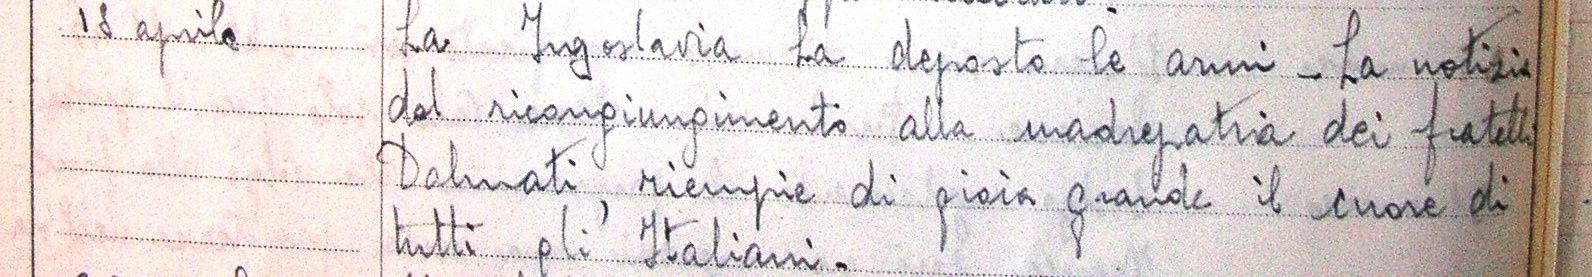 18 aprile La Jugoslavia ha deposto le armi - La notizia
del ricongiungimento alla madrepatria dei fratelli
Dalmati, riempie di gioia grande il cuore di
tutti gli Italiani.